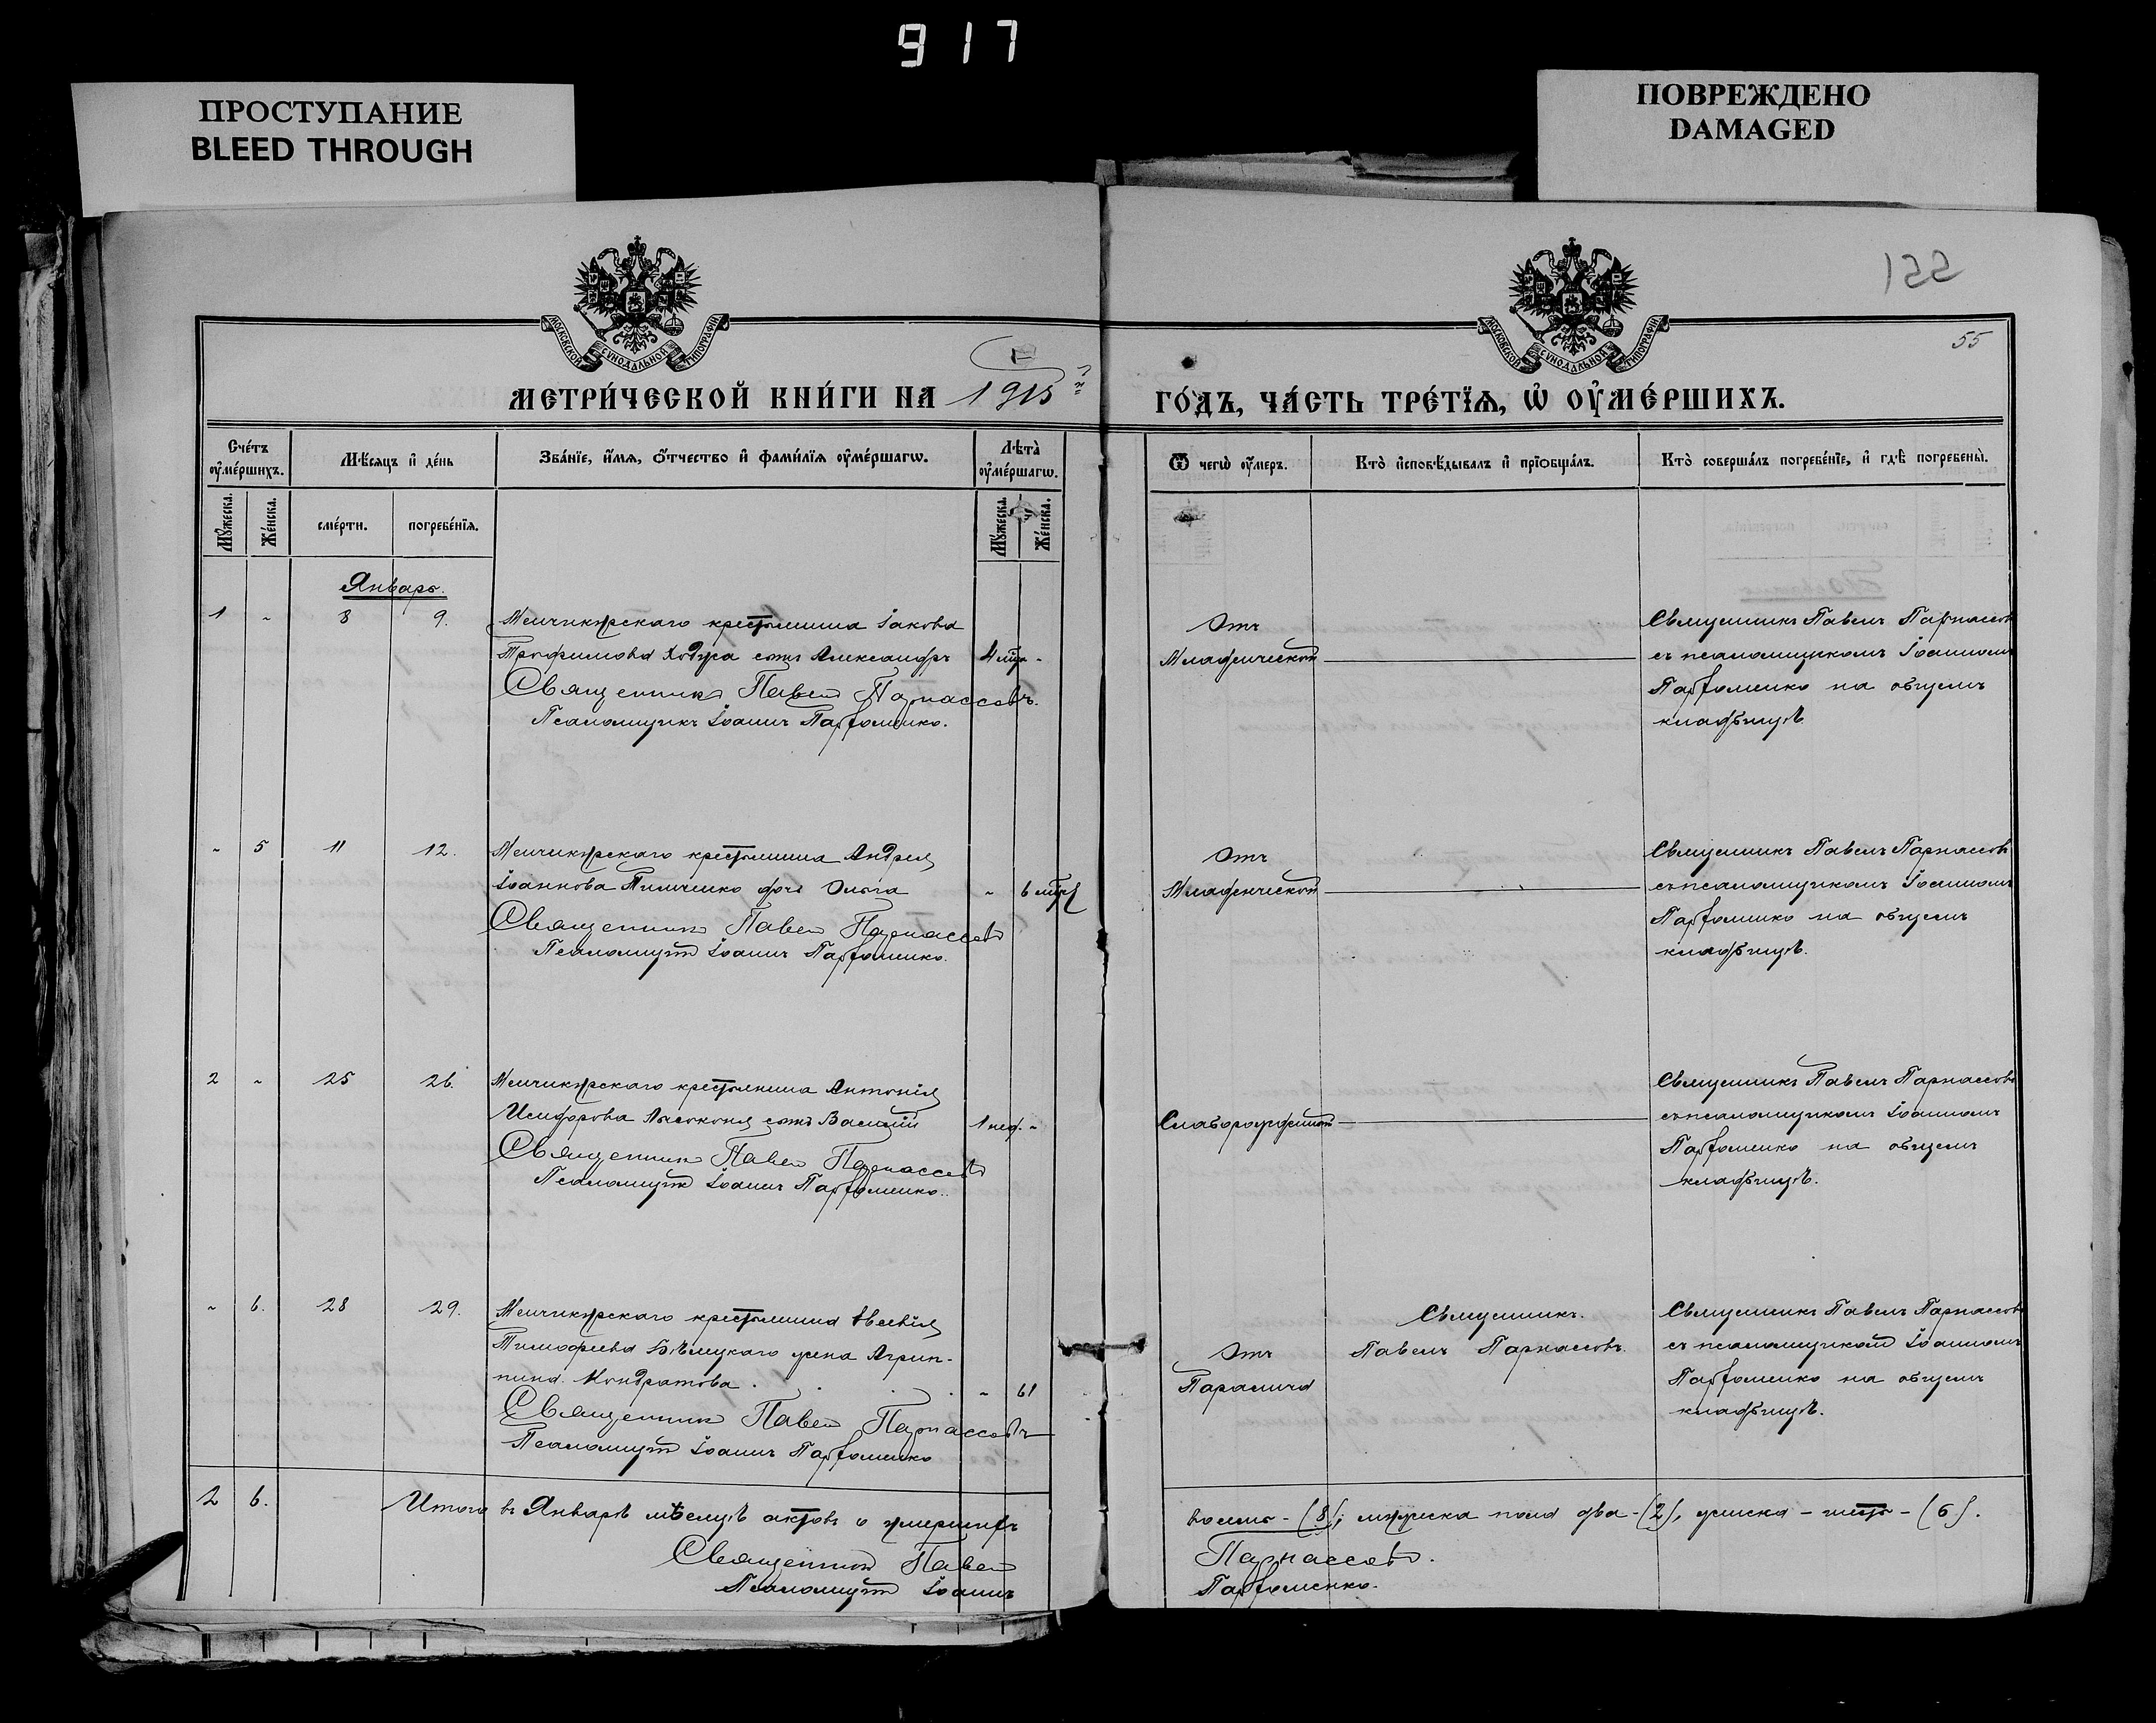 917
ПРОСТУПАНИЕ
BLEED THROUGH
ПОВРЕЖДЕНО
DAMAGED
122
55
МОСКОВСКОЙ СѴНОДАЛЬНОЙ ТИПОГРАФІИ
МОСКОВСКОЙ СѴНОДАЛЬНОЙ ТИПОГРАФІИ
МЕТРИ́ЧЕСКОЙ КНИ́ГИ НА 1915 й
ГО́ДЪ, ЧА́СТЬ ТРЕ́ТЇѦ, Ѡ҆ ОУ҆МЕ́РШИХЪ.
Сче́тъ оу҆ме́ршихъ.
Мѣ́сѧцъ и҆ де́нь
Зва́нїе, и҆́мѧ, ѻ҆́тчество и҆ фами́лїѧ оу҆ме́ршагѡ.
Лѣ́та̀ оу҆ме́ршагѡ.
Ѿ чегѡ̀ оу҆́меръ.
Кто̀ и҆сповѣ́дывалъ и҆ прїѡбща́лъ.
Кто̀ соверша́лъ погребе́нїе, и҆ гдѣ̀ погребены̀.
Мꙋ́жеска.
Же́нска.
сме́рти.
погребе́нїѧ.
Мꙋ́жеска.
Же́нска.
Январь.
1 " 8 9. Менчикурскаго крестьянина Іакова
Трофимова Ходуса сынъ Александръ 4 мѣс. "
Священникъ Павелъ Парнассовъ.
Псаломщикъ Іоаннъ Парфоменко.
Отъ
Младенческой
Священникъ Павелъ Парнассовъ
съ псаломщикомъ Іоанномъ
Парфоменко на общемъ
кладбищѣ.
" 5 11 12. Менчикурскаго крестьянина Андрея
Іоаннова дочь Ольга " 6 мѣс.
Священникъ Павелъ Парнассовъ
Псаломщикъ Іоаннъ Парфоменко.
Отъ
Младенческой
Священникъ Павелъ Парнассовъ
съ псаломщикомъ Іоанномъ
Парфоменко на общемъ
кладбищѣ.
2 " 25 26. Менчикурскаго крестьянина Антонія
сынъ Василій 1 нед. "
Священникъ Павелъ Парнассовъ
Псаломщикъ Іоаннъ Парфоменко.
Священникъ Павелъ Парнассовъ
съ псаломщикомъ Іоанномъ
Парфоменко на общемъ
кладбищѣ.
" 6. 28 29. Менчикурскаго крестьянина Евсевія
Тимофеева Бѣлецкаго жена Агрип-
пина Кондратова " 61
Священникъ Павелъ Парнассовъ
Псаломщикъ Іоаннъ Парфоменко
Отъ
Паралича
Священникъ.
Павелъ Парнассовъ.
Священникъ Павелъ Парнассовъ
съ псаломщикомъ Іоанномъ
Парфоменко на общемъ
кладбищѣ.
2 6. Итого въ Январѣ мѣсяцѣ актовъ о умершихъ
восемь - (8), мужеска пола два - (2), женска - шесть - (6).
Священникъ Павелъ Парнассовъ.
Псаломщикъ Іоаннъ Парфоменко.